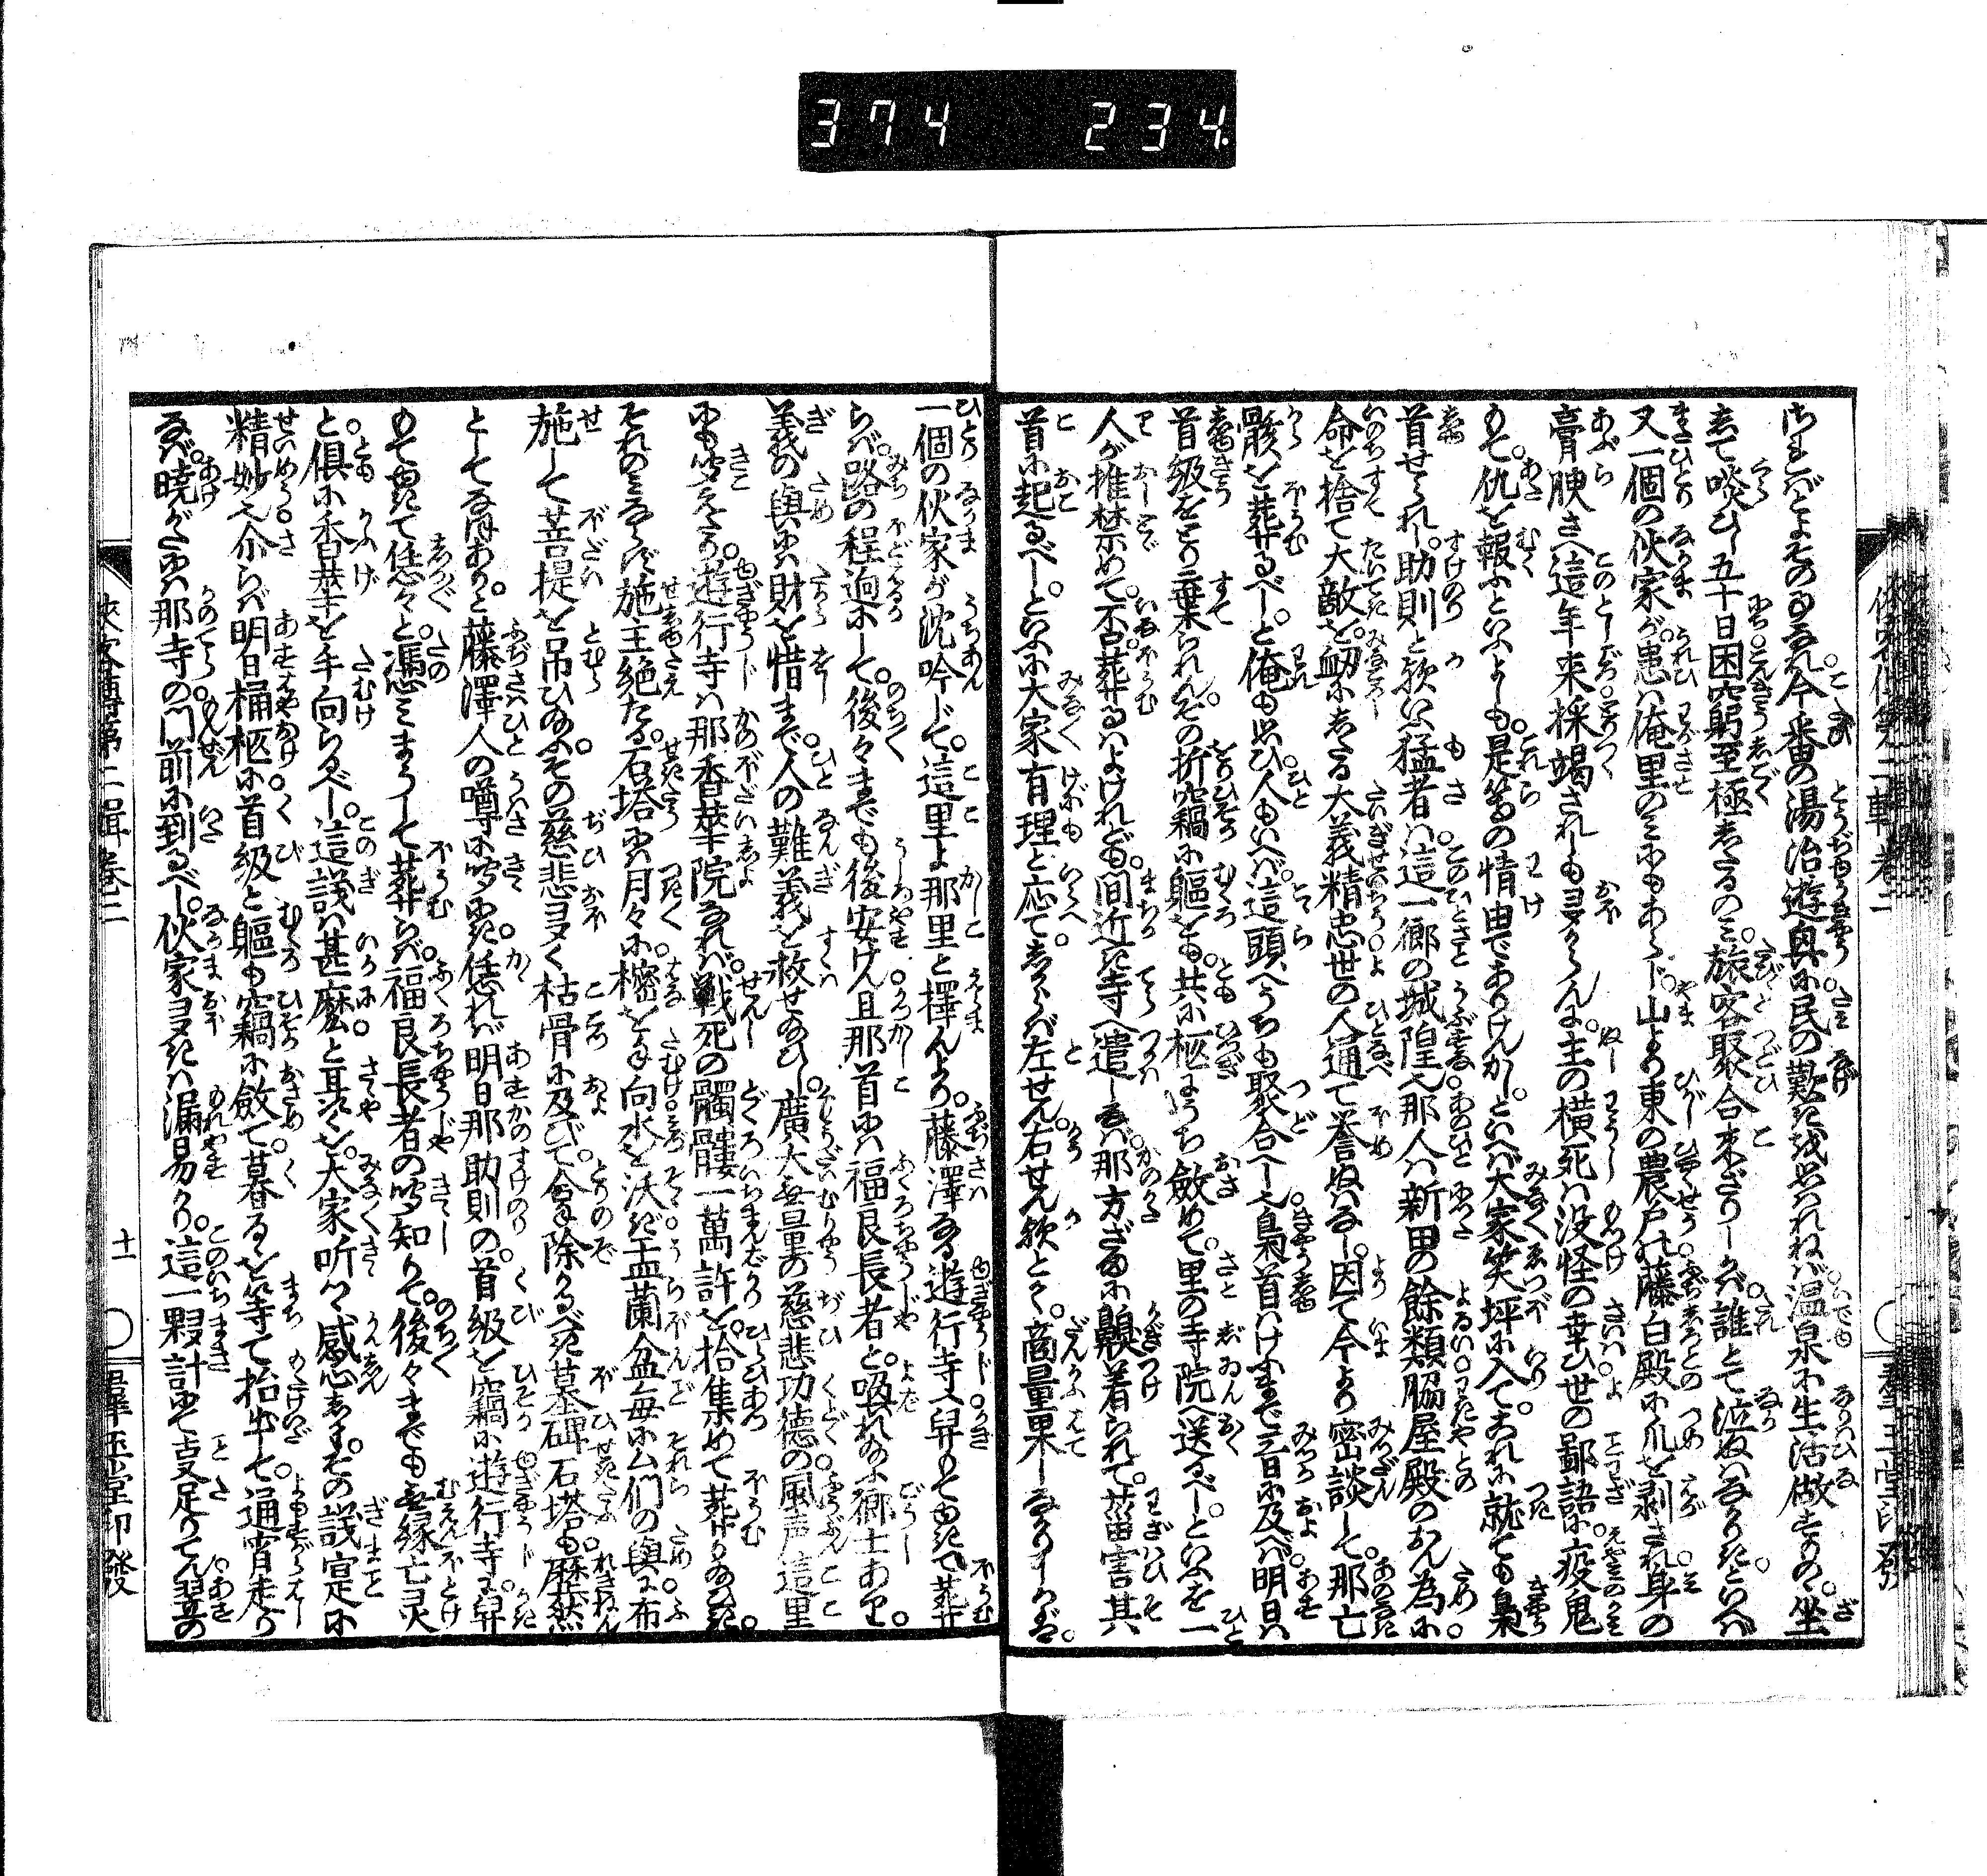 374 234
さればとよその事なれ今番の湯治遊興に民の歎を思はれねば温泉に生活做すもの坐
して啖ひし五十日困窮至極したるのミ旅客聚合来ざりしかば誰とて泣ぬはなかりきといへば
又一個の伙家が患は俺里のミにもあらじ山より東の農戸は藤白殿に爪を剥され身の
膏腴さへ這年来採竭されしも多からんに主の横死は没怪の幸ひ世の鄙語に疫鬼
もて仇を報ふといふよしも是等の情由でありけんかしといへば大家笑坪に入てこれに就ても梟
首せられし助則と歟いふ猛者は這一郷の城隍也那人は新田の餘類脇屋殿のおん為に
命を捨て大敵を刼にしたる大義精忠世の人通て誉ぬはなし因て今より密談して那亡
骸を葬るべしと俺も思ひ人もいへば這頭へうちも聚合へし也梟首はけふまで三日に及べば明日は
首級をとり棄られんその折竊に軀をも共に柩にうち斂めて里の寺院へ送るべしといふを一
人が推禁めて否葬るはよけれども間近き寺へ遣しなば那方ざまに齅着られて菑害其
首に起るべしといふに大家有理と応てしからば左せん右せん歟とて商量果しなかりしかば
一個の伙家が沈吟じて這里よ那里と擇んより藤澤なる遊行寺へ舁もてゆきて葬
らば路の程迥にして後々までも後安けん且那首には福良長者と喚れぬる郷士あり
義の與には財を惜まで人の難義を救せ給ひし廣大無量の慈悲功徳の風声這里
にも聞えたり遊行寺は那香華院なれば戦死の髑髏一萬許を拾集めて葬り給ひき
それのミならで施主絶たる石塔には月々に樒を手向水を沃ぎ盂蘭盆毎に厶們の與に布
施して菩提を吊ひ給ふその慈悲多く枯骨に及びて合除かるべき墓碑石塔も歴然
としてなほありと藤澤人の噂に聞にき恁れば明日那助則の首級を竊に遊行寺に舁
もてゆきて恁々と憑ミまうして葬らば福良長者の聞知りて後々までも無縁亡灵
と倶に香華を手向らるべし這議は甚麼と耳語を大家听て感心しまことその議寔に
精妙也介らば明日桶柩に首級と軀も竊に斂て暮るを等て抬出して通宵走り
なば暁がたには那寺の門前に到るべし伙家多きは漏易かり這一夥計にて事足りてん翌の
侠客傳第二輯巻二 十一 羣玉堂印發